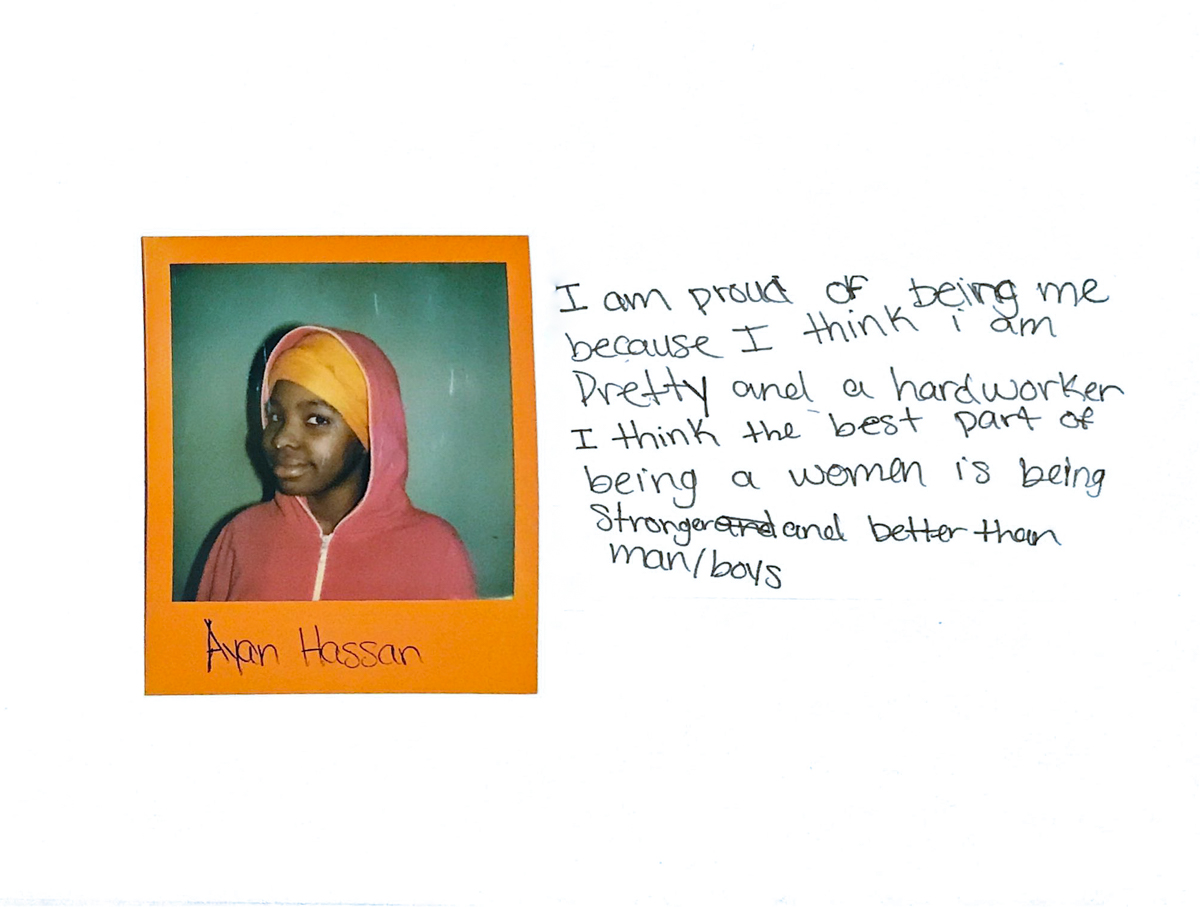 I am proud of being me
because I think i am
Pretty and a hardworker
I think the best part of
being a women is being
Stronger and and better than
man/boys
Ayan Hassan